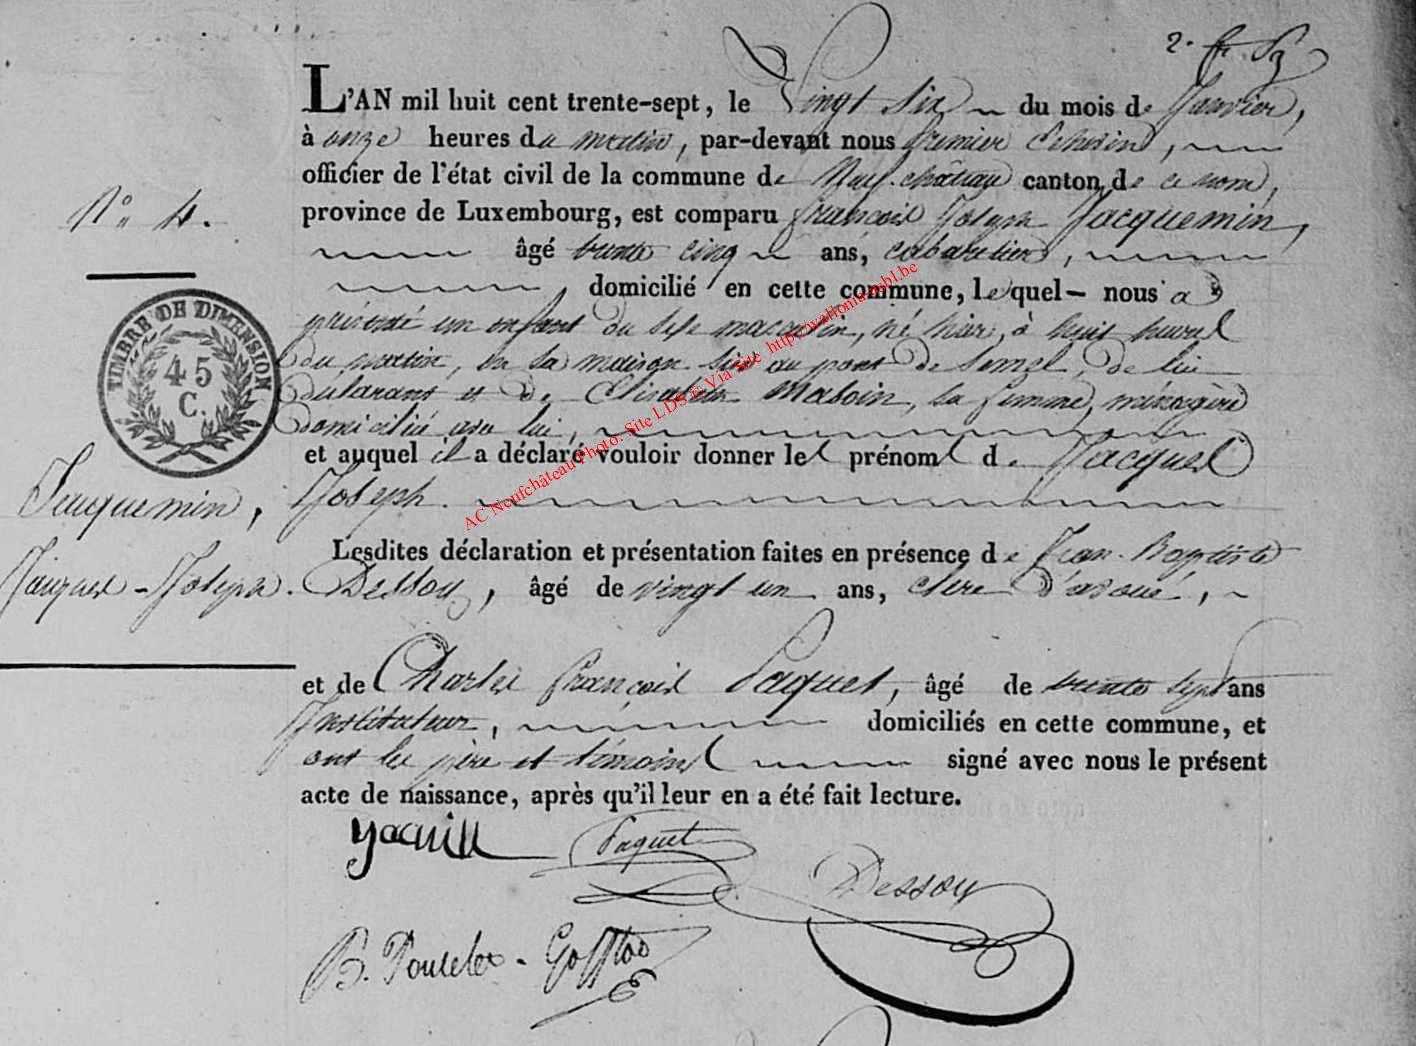 2. f. B
L'AN mil huit cent trente-sept, le Vingt Six du mois de Janvier,
à onze heures du matin, par-devant nous premier Echevin,
officier de l'état civil de la commune de Neufchâteau canton de ce nom,
province de Luxembourg, est comparu françois Joseph Jacquemin,
N.° 4.
âgé trente cinq ans, cabaretier,
domicilié en cette commune, lequel nous a
présenté un enfant du sexe masculin, né hier, à huit heures
du matin, en sa maison sise au pont de de lui
TIMBRE DE DIMENSION
45
C.
déclarant et de Elisabeth Masoin, sa femme, ménagère
domiciliée avec lui,
et auquel il a déclaré vouloir donner les prénoms de Jacques
Joseph.
Jacquemin,
Jacques-Joseph.
Lesdites déclaration et présentation faites en présence de Jean-Baptiste
Dessoy, âgé de vingt un ans, clerc d'avoué,
et de Charles françois Paquet, âgé de trente sept ans
Instituteur, domiciliés en cette commune, et
ont les père et témoins signé avec nous le présent
acte de naissance, après qu'il leur en a été fait lecture.
Paquet
Dessoy
AC Neufchâteau Photo. Site LDS © Via Site http://wallonia-asbl.be